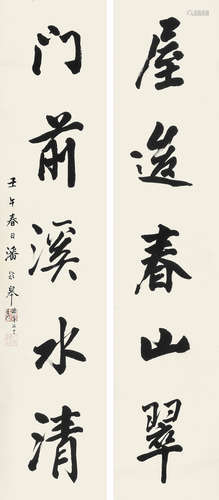 屋後春山翠
门前溪水清
壬午春日潘齡皋